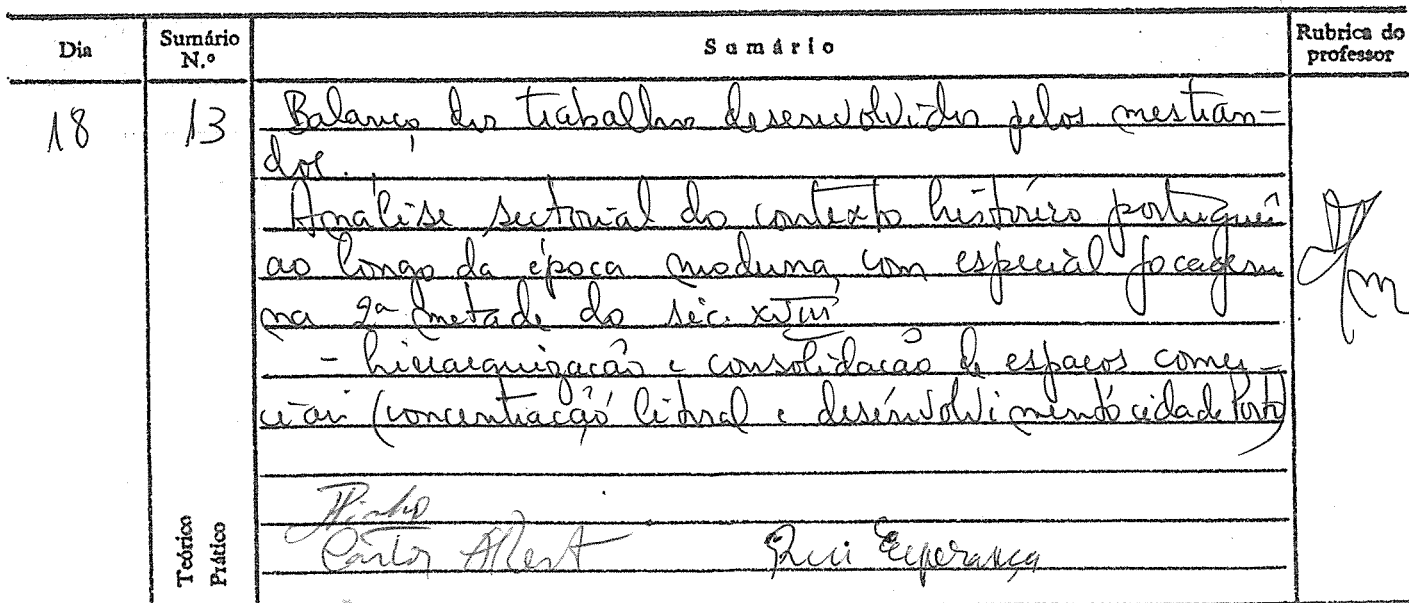 Dia Sumário N.º Sumário Rubrica do professor
18 13 Balanço dos trabalhos desenvolvidos pelos mestran-
dos.
Análise sectorial do contexto histórico português
ao longo da época moderna, com especial focagem
na 2ª metade do séc. XVIII
- hierarquização e consolidação de espaços comer-
ciais (concentração litoral e desenvolvimento cidade Porto)
Pinho
Carlos Rui Esperança
Teórico
Prático